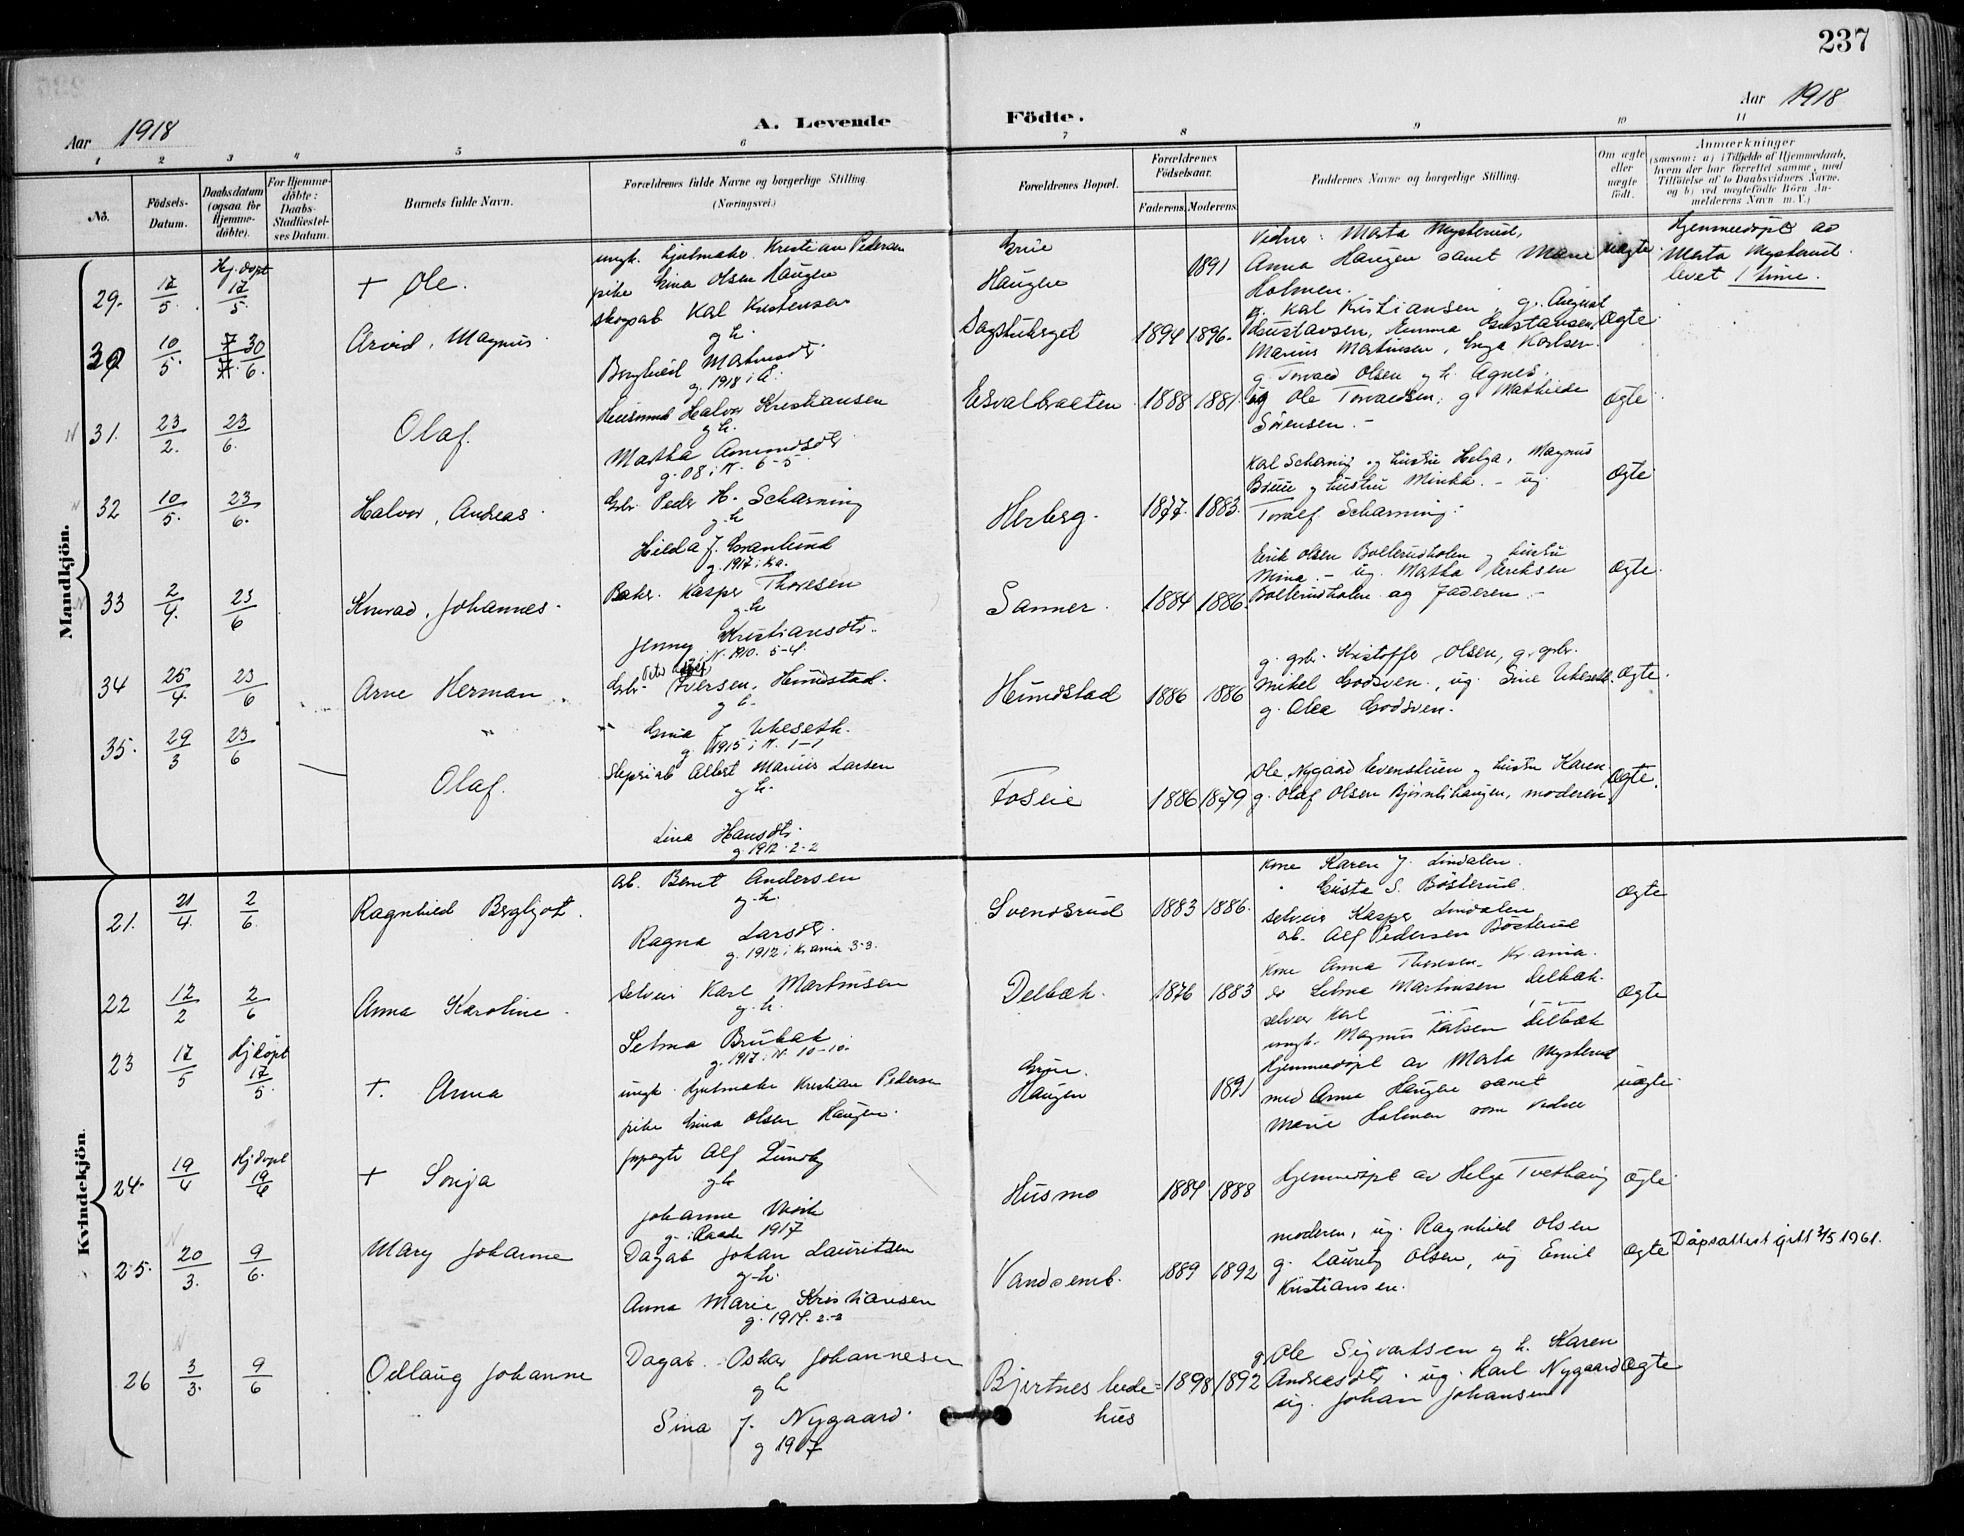 237
Aar 1918
A. Levende Födte.
Aar 1918
1 2 3 4 5 6 7 8 9 10 11
Nö.
Födsels-Datum.
Daabsdatum (ogsaa for Hjemme-döbte).
For Hjemme-döbte: Daabs-Stadfæstel-ses Datum.
Barnets fulde Navn.
Forældrenes fulde Navne og borgerlige Stilling. (Næringsvei.)
Forældrenes Bopæl.
Forældrenes Födselsaar.
Faderens. Moderens.
Faddernes Navne og borgerlige Stilling.
Om ægte eller uægte födt.
Anmærkninger
(saasom: a) i Tilfælde af Hjemmedaab, hvem der har forrettet samme, med Tilföielse af to Daabsvidners Navne, og b) ved uegtefödte Börn An-melderens Navn m. V.)
Mandkjön.
29. 17/5. Hj. døpt 17/5. + Ole.
ungk. hjulmaker Kristian Pedersen
pike Gina Olsen Haugen
Grue
Haugen
1891
Vidner: Marta Mysterud,
Anna Haugen samt Marie
Holmen.
uægte
Hjemmedøpt av
Marta Mysterud
levet 1 time.
30 10/5. 30/6. Arvid, Magnus
skogsarb Karl Kristensen
g. h.
Borghild Martinsdtr
g. 1918 i
1894 1896.
g. Karl Kristiansen, g. August
Gustavsen, Emma Gustavsen,
Marius Martinsen, Inga Karlsen.
Ægte
31. 23/2. 23/6. Olaf.
Huusmand Halvor Kristiansen
g. h.
Martha Amundsdtr
g. 08 i N. 6-5
Esvalbraaten 1888 1881
g. Torvald Olsen g. h. Agnes.
ug Ole Torvaldsen, g Mathilde
Sørensen. -
Ægte
32 10/5. 23/6. Halvor, Andreas
Grbr. Peder H. Scharning
g. h
Hilda J. Granlund
g. 1917 i Kra.
Herberg. 1877. 1883.
Karl Scharning og hustru Helga, Magnus
Bruu g hustru Minka. - ug.
Toralf Scharning.
Ægte
33 2/4. 23/6 Konrad, Johannes.
Baker. Kasper Thoresen
g. h
Jenny Kristiansdtr.
N. 1910. 5-4.
Sanner. 1884 1886
Erik Olsen Bollerudholen g hustru
Mina. - ug. Martha Eriksen
Bollerudholen og Faderen. -
Ægte.
34 25/4. 23/6 Arne Herman
Grbr. Iversen, Hundstad.
g h.
Gina J. Ukeseth.
g. 1915 i N. 1-1
Hundstad 1886 1886
g. grbr. Kristoffer Olsen, g. grbr.
Mikel Godsven., ug. Sine Ukeseth.
g. Olea Godsven.
Ægte.
35. 29/3 23/6 Olaf.
Sliperiarb Albert Marius Larsen
g h.
Lina Hansdtr.
g. 1912 2-2
Foseie 1886 1879
Ole Nygaard Evenstuen g hustru Karen
g. Olaf Olsen Bjørnlihaugen, moderen
Ægte.
Kvindekjön.
21. 21/4. 2/6. Ragnhild Bergljot.
arb. Bernt Andersen
g. h.
Ragna Larsdtr.
g. 1912 i Kr.ania 3-3.
Svendsrud 1883 1886.
Kone Karen J. Lindalen.
" Gusta S. Bøsterud.
selveier Kasper Lindalen
arb. Alf Pedersen Bøsterud
Ægte
22 12/2 2/6 Anna Karoline.
selveier Karl Martinsen
g. h.
Selma Brubak
g. 1917 i N. 10-10.
Delbæk. 1876 1883
Kone Anna Thoresen Kr.ania.
do Selma Martinsen Delbæk.
selveier Karl
ungk. Magnus Delbæk
Ægte
23 17/5 Hj døpt 17/5. +. Anna
ungk. hjulmaker Kristian Pedersen
pike Gina Olsen Haugen.
Grue.
Haugen
1891
Hjemmedøpt av Marta Mysterud
med Anna Haugen samt
Marie Holmen som vidner
uægte
24. 19/4 Hj døpt 19/4 + Sonja
Alf Lundby
g. h
Johanne
g. i Raade 1917
Husmo 1884 1888
Hjemmedøpt av Helge Tvethaug
Ægte
25. 20/3. 9/6. Mary Johanne
Dagarb Johan Lauritsen
g. h.
Anna Marie Kristiansen
g. 1914. 2-2
Vandsemb. 1889 1892
moderen, ug. Ragnhild Olsen
g. Lauritz Olsen, ug Emil
Kristiansen.
Ægte
Dåpsattest gitt 2/5 1961.
26 3/3. 9/6 Odlaug Johanne
Dagarb. Oskar Johannesen
g h
Sina J. Nygaard.
g 1917
Bjertnes bede=
hus
1898 1892
g. Ole Sigvartsen g. h. Karen
Andreasdtr. ug. Karl Nygaard
ug. Johan Johansen
Ægte